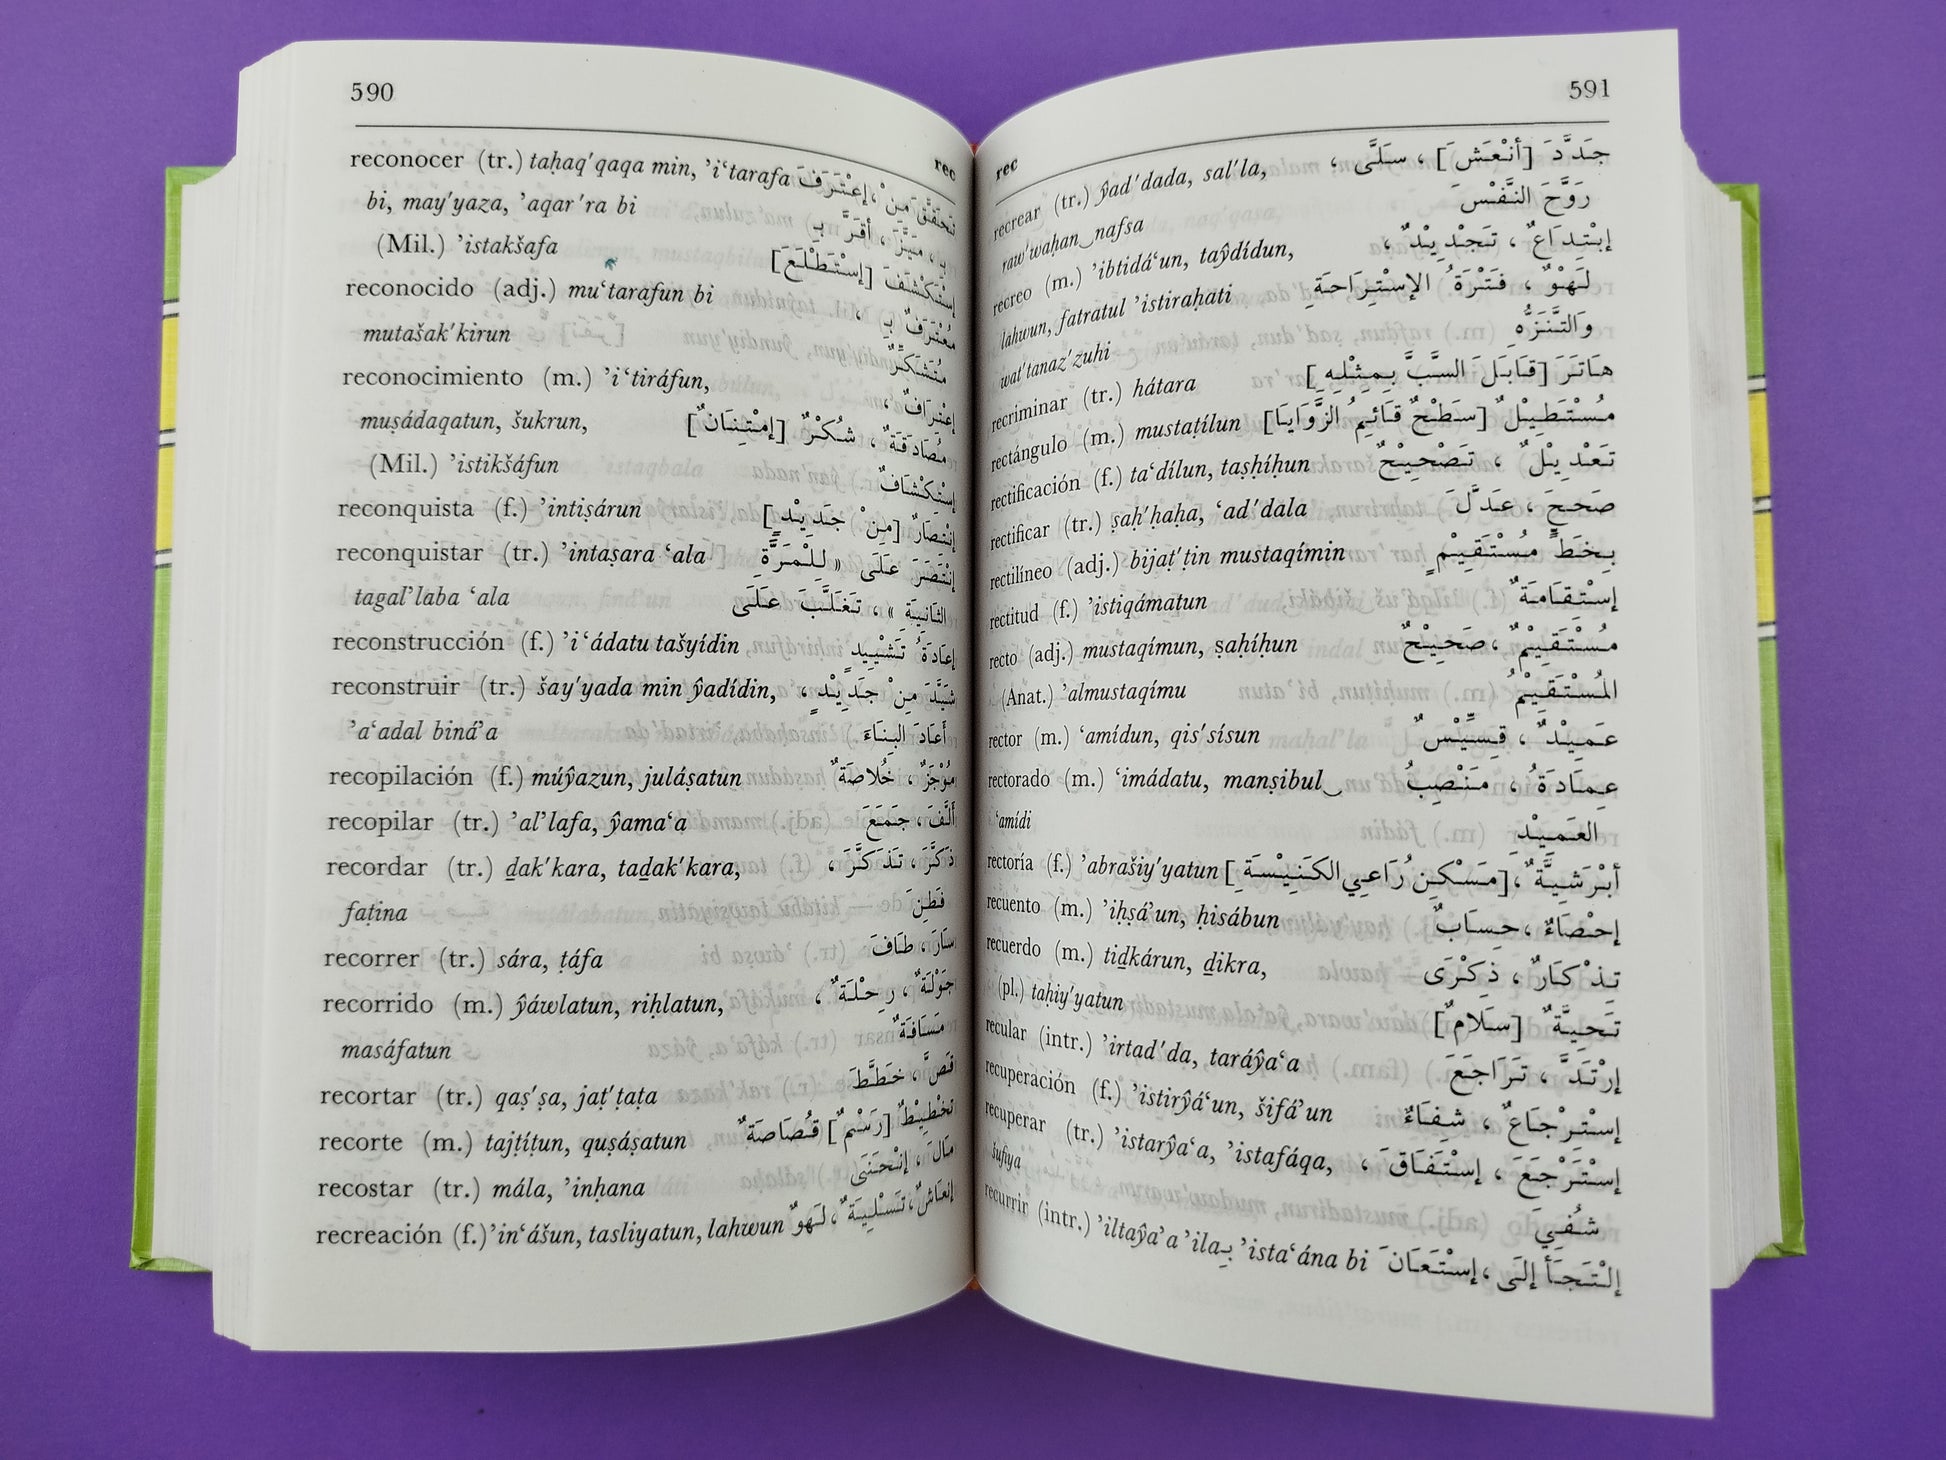 590
rec
reconocer (tr.) taḥaq'qaqa min, ’i‘tarafa تَحَقَّقَ مِنْ ، إعْتَرَفَ
bi, may'yaza, ’aqar'ra bi بِ ، مَيَّزَ ، أقَرَّ بِ
(Mil.) ’istakšafa إسْتَكْشَفَ [إسْتَطْلَعَ]
reconocido (adj.) mu‘tarafun bi مُعْتَرَفٌ بِ ،
mutašak'kirun مُتَشَكِّرٌ
reconocimiento (m.) ’i‘tiráfun, إعْتِرَافٌ ،
muṣádaqatun, šukrun, مُصَادَقَةٌ ، شُكْرٌ [إمْتِنَانٌ]
(Mil.) ’istikšáfun إسْتِكْشَافٌ
reconquista (f.) ’intiṣárun إنْتِصَارٌ [مِنْ جَدِيْدٍ]
reconquistar (tr.) ’intaṣara ‘ala إنْتَصَرَ عَلَى « لِلْمَرَّةِ
tagal’laba ‘ala الثَانِيَةِ » ، تَغَلَّبَ عَلَى
reconstrucción (f.) ’i‘ádatu tašyídin إعَادَةُ تَشْيِيدٍ
reconstruir (tr.) šay'yada min ŷadídin, شَيَّدَ مِنْ جَدِيْدٍ ،
’a‘adal biná’a أَعَادَ البِنَاءَ
recopilación (f.) múŷazun, juláṣatun مُوْجَزٌ ، خُلاصَةٌ
recopilar (tr.) ’al’lafa, ŷama‘a أَلَّفَ ، جَمَعَ
recordar (tr.) ḏak'kara, taḏak'kara, ذَكَّرَ ، تَذَكَّرَ ،
faṭina فَطِنَ
recorrer (tr.) sára, ṭáfa سَارَ ، طَافَ
recorrido (m.) ŷáwlatun, riḥlatun, جَوْلَةٌ ، رِحْلَةٌ ،
masáfatun مَسَافَةٌ
recortar (tr.) qaṣ'ṣa, jaṭ'ṭaṭa قَصَّ ، خَطَّطَ
recorte (m.) tajṭíṭun, quṣáṣatun تَخْطِيْطٌ [رَسْمٌ] قُصَاصَةٌ
recostar (tr.) mála, ’inḥana مَالَ ، إنْحَنَى
recreación (f.) ’in‘ášun, tasliyatun, lahwun إنْعَاشٌ ، تَسْلِيَةٌ ، لَهوٌ
591
rec
recrear (tr.) ŷad'dada, sal'la, جَدَّدَ [أنْعَشَ] ، سَلَّى ،
raw'waḥan‿nafsa رَوَّحَ النَّفْسَ
recreo (m.) ’ibtidá‘un, taŷdídun, إبْتِدَاعٌ ، تَجْدِيْدٌ ،
lahwun, fatratul ’istiraḥati لَهْوٌ ، فَتْرَةُ الإسْتِرَاحَةِ
wat'tanaz'zuhi وَالتَّنَزُّهِ
recriminar (tr.) hátara هَاتَرَ [قَابَلَ السَّبَّ بِمِثْلِهِ]
rectángulo (m.) mustaṭílun مُسْتَطِيْلٌ [سَطْحٌ قَائِمُ الزَّوَايَا]
rectificación (f.) ta‘dílun, taṣḥíḥun تَعْدِيْلٌ ، تَصْحِيْحٌ
rectificar (tr.) ṣaḥ'ḥaḥa, ‘ad'dala صَحَحَّ ، عَدَّلَ
rectilíneo (adj.) bijaṭ'ṭin mustaqímin بِخَطٍّ مُسْتَقِيْمٍ
rectitud (f.) ’istiqámatun إسْتِقَامَةٌ
recto (adj.) mustaqímun, ṣaḥíḥun مُسْتَقِيْمٌ ، صَحِيْحٌ
(Anat.) ’almustaqímu المُسْتَقِيْمُ
rector (m.) ‘amídun, qis'sísun عَمِيْدٌ ، قِسِّيْسٌ
rectorado (m.) ‘imádatu, manṣibul‿ عِمَادَةُ ، مَنْصِبُ
‘amídi العَمِيْدِ
rectoría (f.) ’abrašiy'yatun أبْرَشِيَّةٌ ، [مَسْكِن رُاعِي الكَنِيْسَةِ]
recuento (m.) ’iḥṣá’un, ḥisábun إحْصَاءٌ ، حِسَابٌ
recuerdo (m.) tiḏkárun, ḏikra, تِذْكَارٌ ، ذِكْرَى
(pl.) taḥiy'yatun تَحِيَّةٌ [سَلَامٌ]
recular (intr.) ’irtad'da, taráŷa‘a إرْتَدَّ ، تَرَاجَعَ
recuperación (f.) ’istirŷá‘un, šifá’un إسْتِرْجَاعٌ ، شِفَاءٌ
recuperar (tr.) ’istarŷa‘a, ’istafáqa, إسْتَرْجَعَ ، إسْتَفَاقَ ،
šufiya شُفِيَ
recurrir (intr.) ’iltaŷa’a ’ila بِ ’ista‘ána bi إلْتَجَأ إلَى ، إسْتَعَانَ